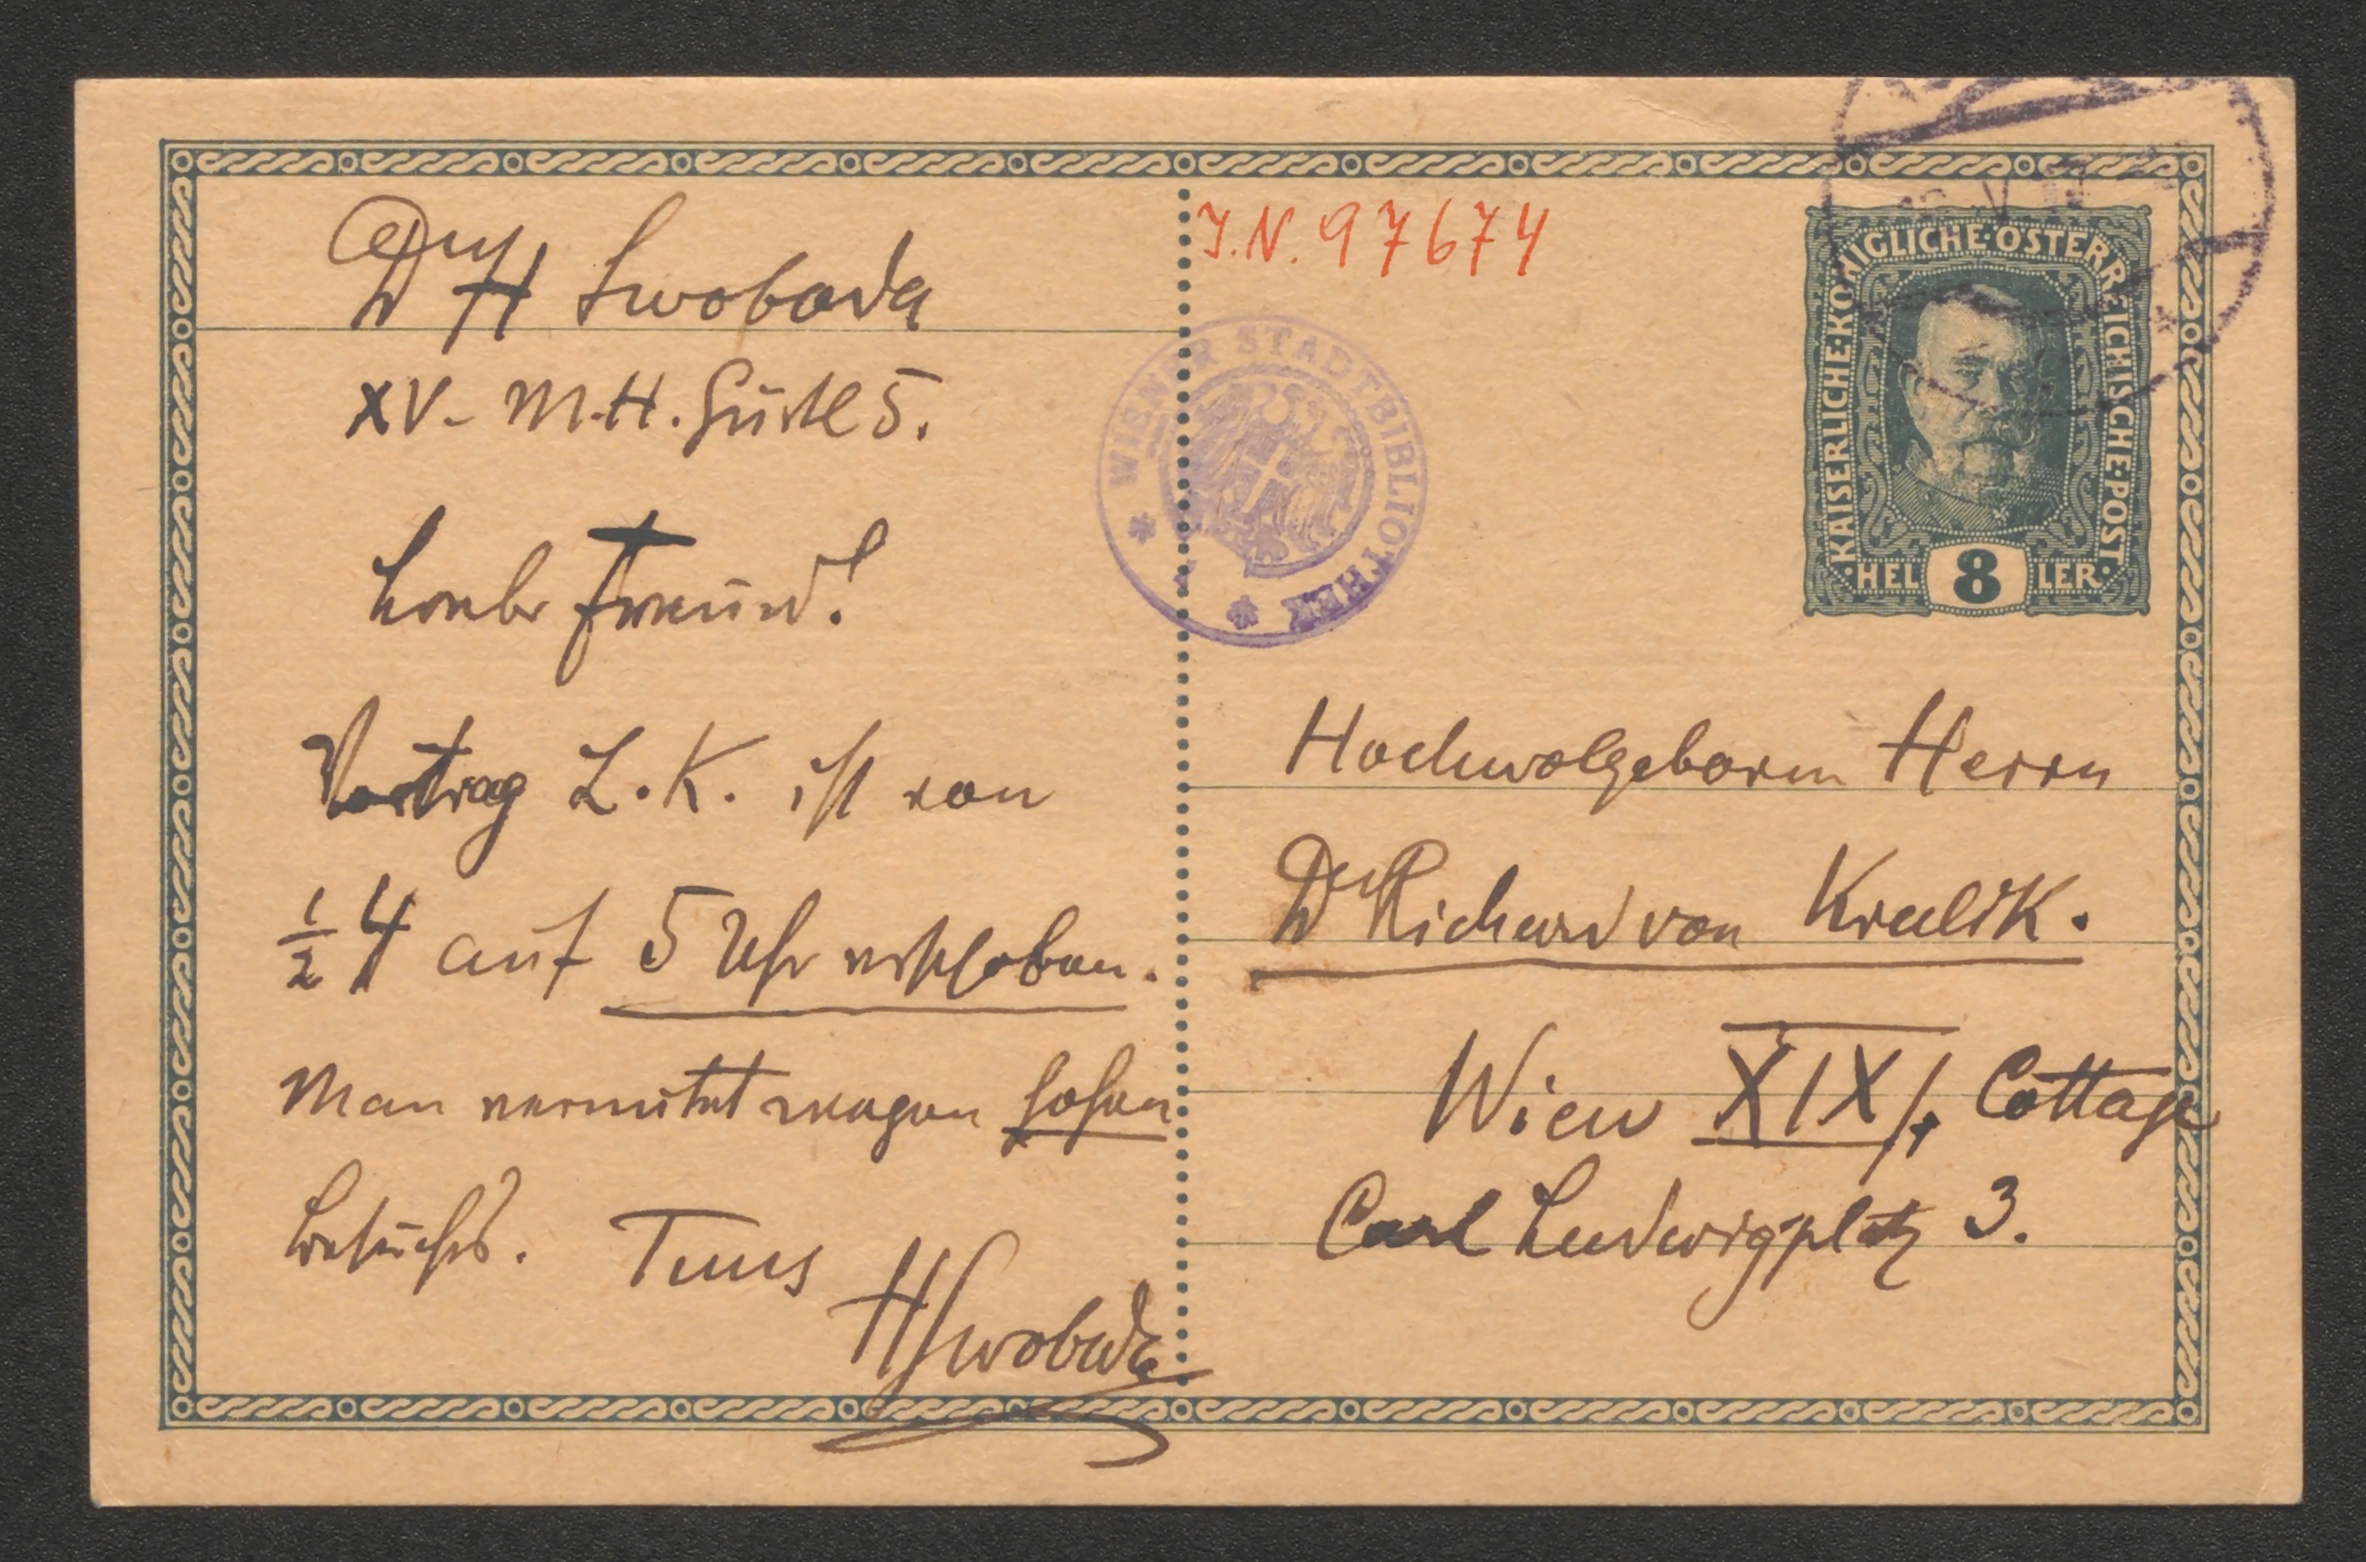 Dr H Swoboda
XV. M.H. Gürtel 5.
Lieber Freund!
Vortrag L.K. ist von
½ 4 auf 5 Uhr verschoben.
Man vermutet wegen hohen
Besuchs. Tuus
HSwoboda
J.N. 97674
WIENER STADTBIBLIOTHEK
KAISERLICHE·KÖNIGLICHE·ÖSTERREICHISCHE·POST
HEL 8 LER
Hochwolgeboren Herrn
Dr Richard von Kralik.
Wien XIX/1, Cottage
Carl Ludwigplatz 3.